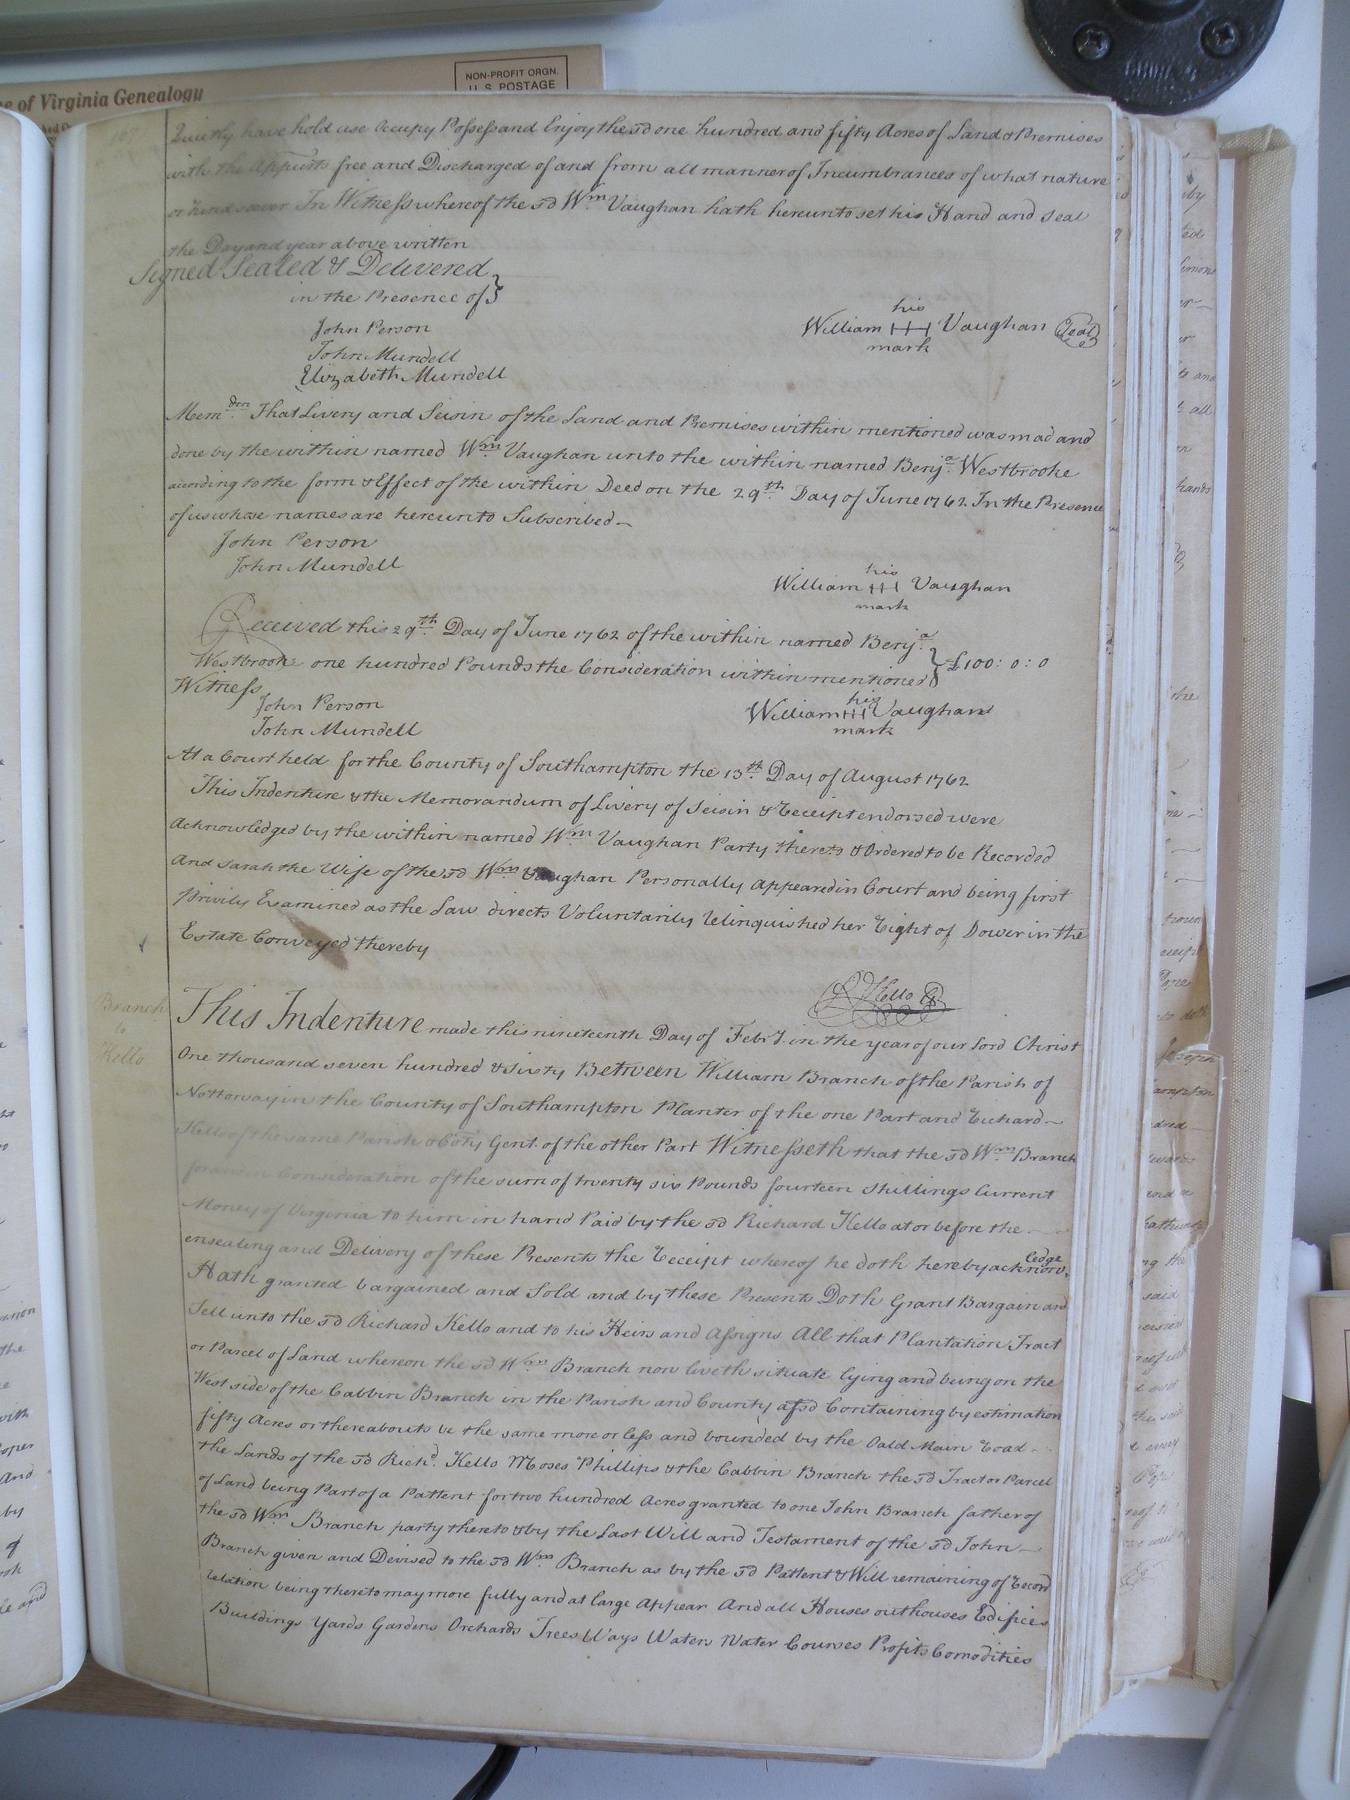 e of Virginia Genealogy
NON-PROFIT ORGN.
U.S. POSTAGE
167
Quietly have hold use occupy Possess and Enjoy the sd one hundred and fifty Acres of Land & Premises
with the Appurts free and Discharged of and from all manner of Incumbrances of what nature
or kind soever In Witness whereof the sd Wm Vaughan hath hereunto set his Hand and Seal
the Day and year above written
Signed Sealed & Delivered
in the Presence of
John Person
John Mundell
Elizabeth Mundell
his
William H Vaughan Seal
mark
Memdm That Livery and Seisin of the Land and Premises within mentioned was mad and
done by the within named Wm Vaughan unto the within named Benja Westbrooke
according to the form & Effect of the within Deed on the 29th Day of June 1762 In the Presence
of us whose names are hereunto Subscribed
John Person
John Mundell
his
William H Vaughan
mark
Received this 29th Day of June 1762 of the within named Benja
Westbrooke one hundred Pounds the Consideration within mentioned £100:0:0
Witness
John Person
John Mundell
his
William H Vaughan
mark
At a Court held for the County of Southampton the 13th Day of August 1762
This Indenture & the Memorandum of Livery of Seisin & Receipt endorsed were
Acknowledged by the within named Wm Vaughan Party thereto & Ordered to be Recorded
And Sarah the Wife of the sd Wm Vaughan Personally appeared in Court and being first
Privily Examined as the Law directs Voluntarily relinquished her Right of Dower in the
Estate Conveyed thereby
R Kello
Branch
to
Kello
This Indenture made this nineteenth Day of Febry. in the year of our Lord Christ
One thousand seven hundred & sixty Between William Branch of the Parish of
Nottoway in the County of Southampton Planter of the one Part and Richard
Kello of the same Parish & Coty Gent. of the other Part Witnesseth that the sd Wm Branch
for & in Consideration of the sum of twenty six Pounds fourteen shillings Current
Money of Virginia to him in hand Paid by the sd Richard Kello at or before the
ensealing and Delivery of these Presents the Receipt whereof he doth hereby acknowledge
Hath granted bargained and Sold and by these Presents Doth Grant Bargain and
Sell unto the sd Richard Kello and to his Heirs and Assigns All that Plantation Tract
or Parcel of Land whereon the sd Wm Branch now liveth situate lying and being on the
West side of the Cabbin Branch in the Parish and County afsd Containing by estimation
fifty Acres or thereabouts be the same more or less and bounded by the Oald Main Road
the Lands of the sd Richd. Kello Moses Phillips & the Cabbin Branch the sd Tract or Parcel
of Land being Part of a Pattent for two hundred Acres granted to one John Branch father of
the sd Wm Branch party thereto & by the Last Will and Testament of the sd John
Branch given and Devised to the sd Wm Branch as by the sd Pattent & Will remaining of Record
relation being thereto may more fully and at large Appear And all Houses outhouses Edifices
Buildings Yards Gardens Orchards Trees Ways Waters Water Courses Profits Comodities